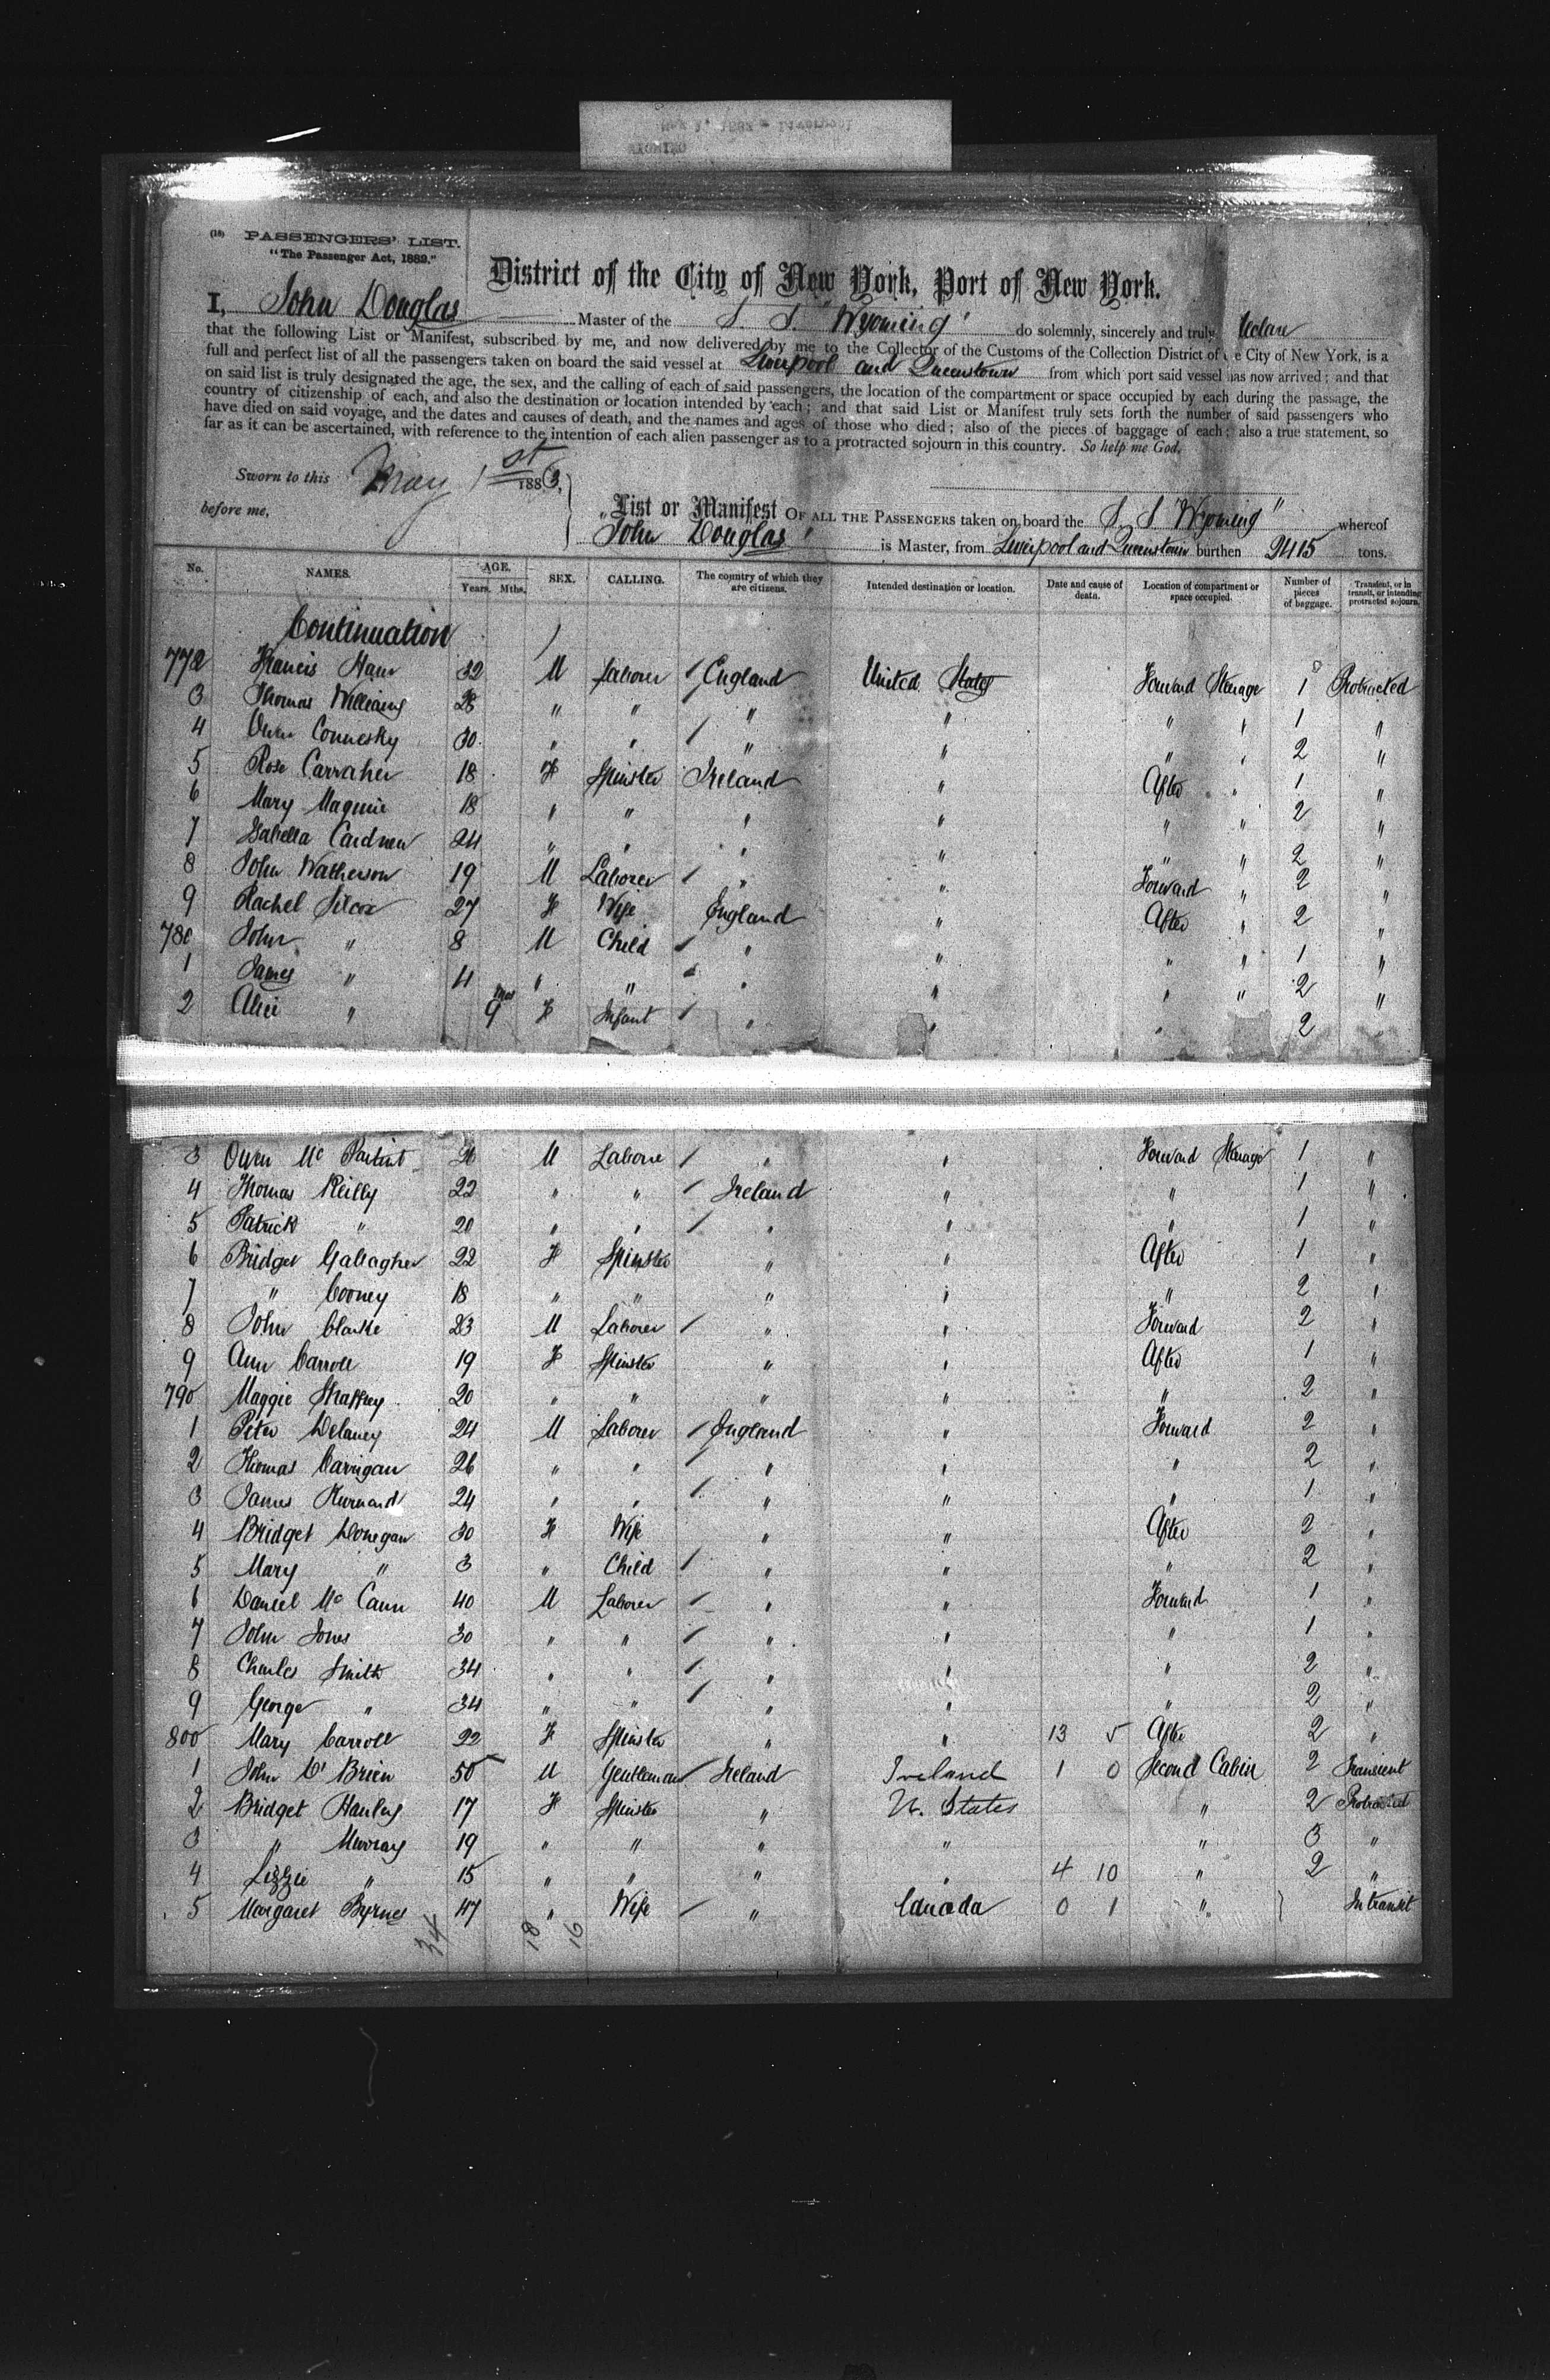 (18) PASSENGERS' LIST.
"The Passenger Act, 1882."
District of the City of New York, Port of New York.
I, John Douglas Master of the S. S. "Wyoming" do solemnly, sincerely and truly declare
that the following List or Manifest, subscribed by me, and now delivered by me to the Collector of the Customs of the Collection District of e City of New York, is a
full and perfect list of all the passengers taken on board the said vessel at Liverpool and Queenstown from which port said vessel has now arrived; and that
on said list is truly designated the age, the sex, and the calling of each of said passengers, the location of the compartment or space occupied by each during the passage, the
country of citizenship of each, and also the destination or location intended by each; and that said List or Manifest truly sets forth the number of said passengers who
have died on said voyage, and the dates and causes of death, and the names and ages of those who died; also of the pieces of baggage of each; also a true statement, so
far as it can be ascertained, with reference to the intention of each alien passenger as to a protracted sojourn in this country. So help me God.
Sworn to this May 1st 1883,
before me,
List or Manifest OF ALL THE PASSENGERS taken on board the S S "Wyoming" whereof
"John Douglas" is Master, from Liverpool and Queenstown burthen 2415 tons.
No. NAMES. AGE. Years. Mths. SEX. CALLING. The country of which they are citizens. Intended destination or location. Date and cause of death. Location of compartment or space occupied. Number of pieces of baggage. Transient, or in transit, or intending protracted sojourn.
Continuation
772 Francis 32 M Laborer England United States Forward Steerage 1 Protracted
3 Thomas Williams 28 " " " " " " 1 "
4 Owen Connesky 30 " " " " " " 2 "
5 Rose Carraher 18 F Spinster Ireland " After " 1 "
6 Mary Maguire 18 " " " " " " 2 "
7 Isabella 24 " " " " " " 2 "
8 John Watherson 19 M Laborer " " Forward " 2 "
9 Rachel Silcox 27 F Wife England " After " 2 "
780 John " 8 M Child " " " " 1 "
1 James " 4 " " " " " " 2 "
2 Alice " 9 mos F Infant " " " 2
3 Owen Mc M Laborer " " Forward Steerage 1 "
4 Thomas Reilly 22 " " Ireland " " 1 "
5 Patrick " 20 " " " " " 1 "
6 Bridget Gallagher 22 F Spinster " " After 1 "
7 " Cooney 18 " " " " " 2 "
8 John Clarke 23 M Laborer " " Forward 2 "
9 Ann Carroll 19 F Spinster " " After 1 "
790 Maggie Shaffrey 20 " " " " " 2 "
1 Peter Delaney 24 M Laborer England " Forward 2 "
2 Thomas Carrigan 26 " " " " " 2 "
3 James 24 " " " " " 1 "
4 Bridget Donegan 30 F Wife " " After 2 "
5 Mary " 3 " Child " " " 2 "
6 Daniel Mc Cann 40 M Laborer " " Forward 1 "
7 John Jones 30 " " " " " 1 "
8 Charles Smith 34 " " " " " 2 "
9 George " 34 " " " " " 2 "
800 Mary Carroll 22 F Spinster " " 13 5 After 2 "
1 John O'Brien 50 M Gentleman Ireland Ireland 1 0 Second Cabin 2 Transient
2 Bridget Hanley 17 F Spinster " U. States " 2 Protracted
3 " Murray 19 " " " " " 3 "
4 Lizzie " 15 " " " " 4 10 " 2 "
5 Margaret Byrnes 47 " Wife " Canada 0 1 " In transit
34 18 16